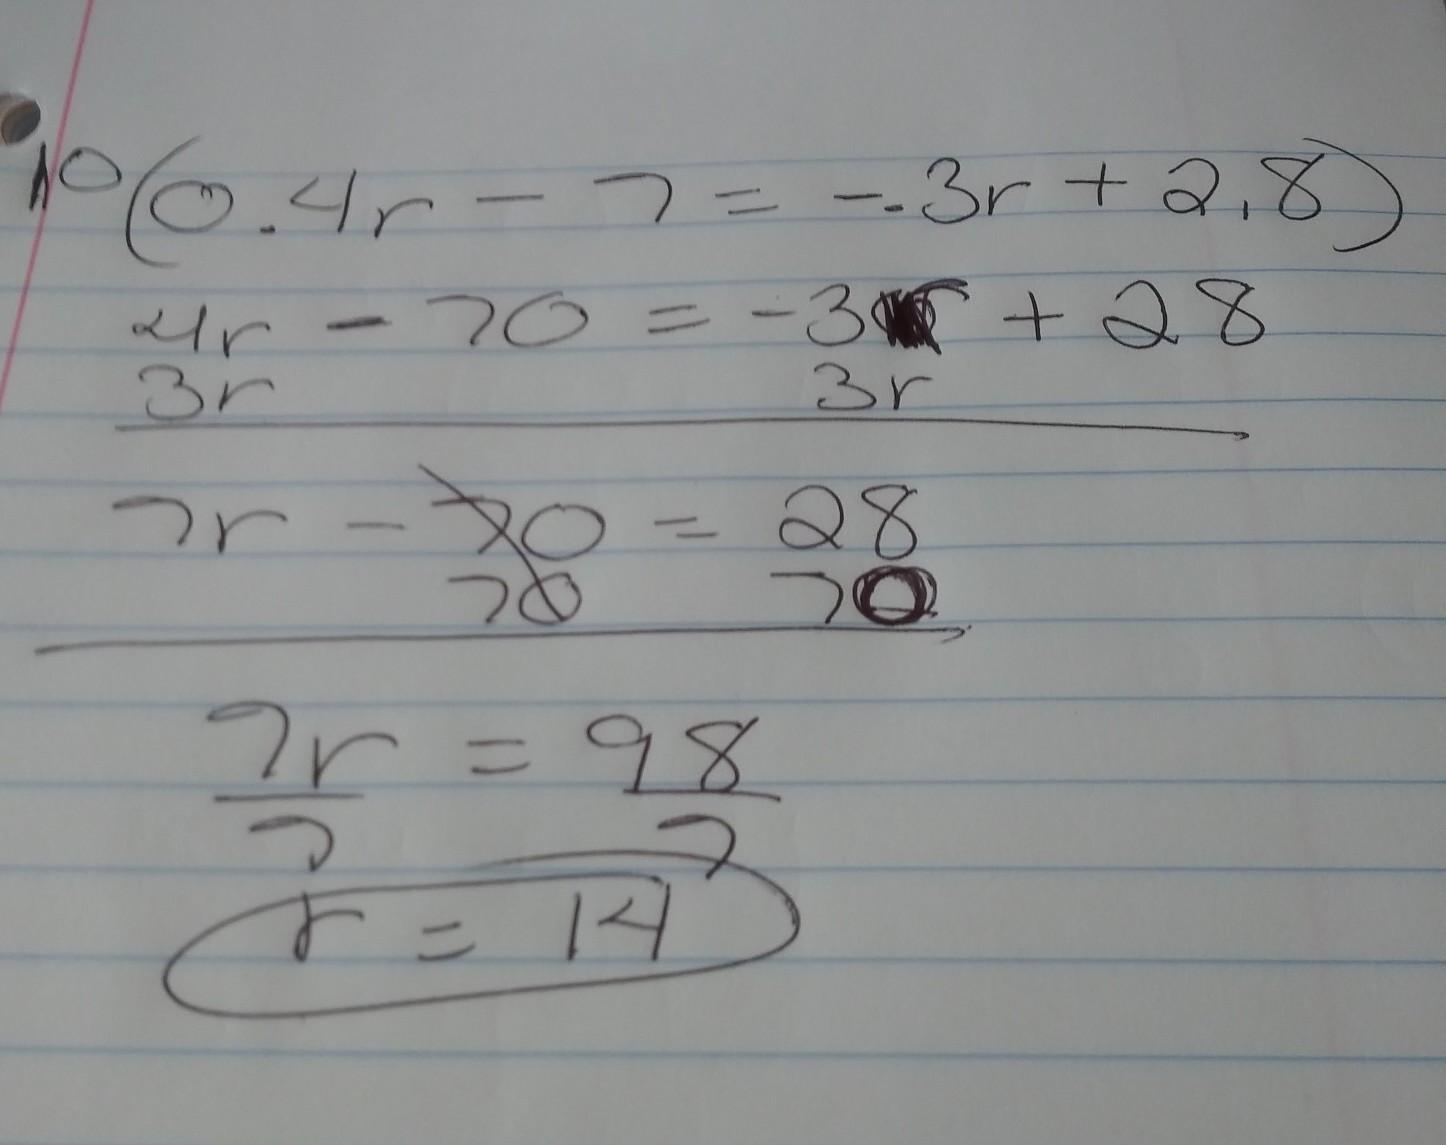 10(0.4r - 7 = -.3r + 2.8)
4r - 70 = -3r + 28
3r 3r
7r - 70 = 28
70 70
7r = 98
7 7
r = 14